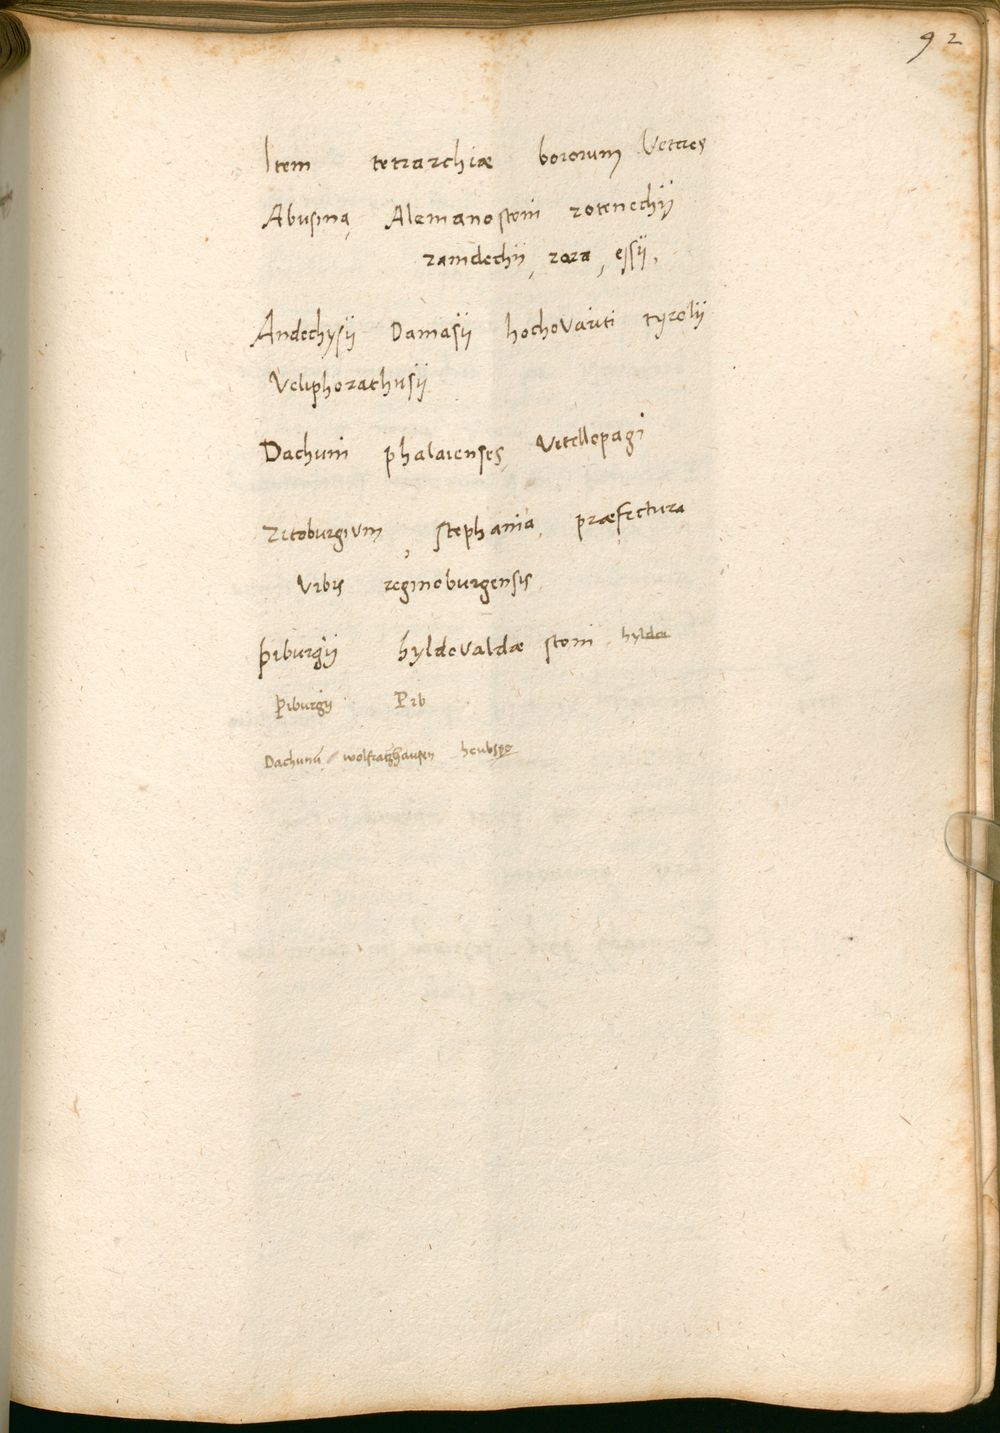 92
Item tetrarchiæ boiorum Veteres
Abusina, Alemanostoni rotenechij
ramdechij, rora, essij,
Andechysij Damasij hochoVariti tyrolij
Veliphorathusij
Dachuni phalaienses, Vitellopagi
ritoburgium, stephania, præfectura
Vrbis reginoburgensis
þiburgij hyldeValdæ stoni hylde
Piburgij Pib
Dachunij wolfratzhausen